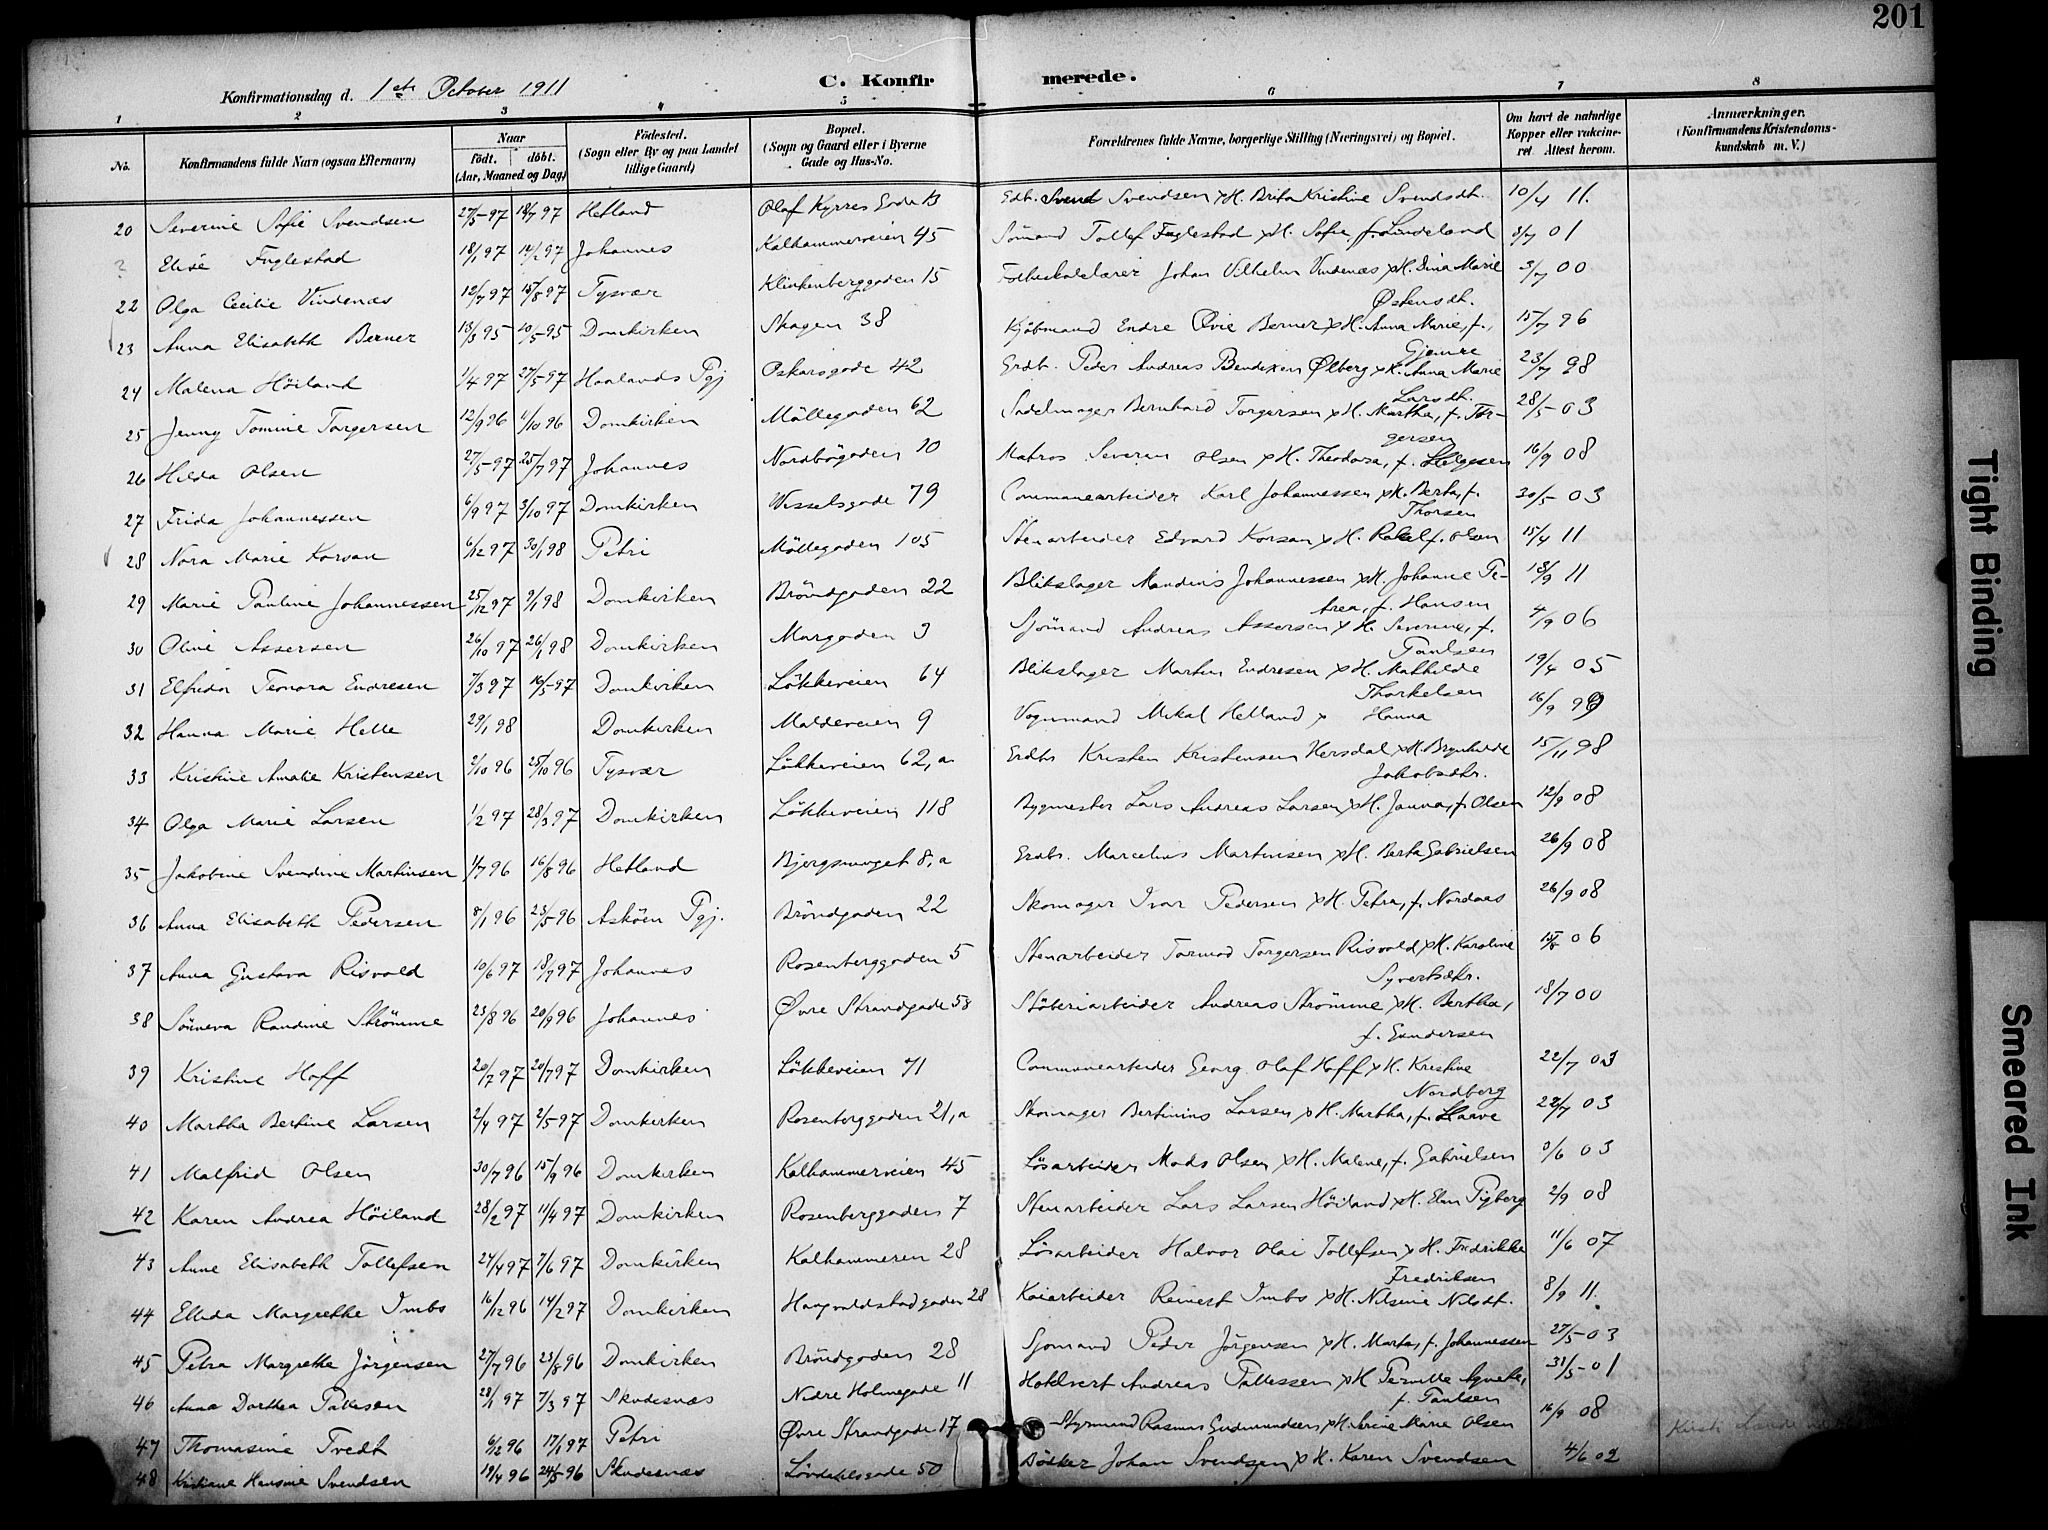 201
Konfirmationsdag d. 1ste October 1911 C. Konfirmerede.
1 2 3 4 5 6 7 8
No. Konfirmandens fulde Navn (ogsaa Efternavn) Naar födt. döbt. (Aar, Maaned og Dag) Födested. (Sogn eller By og paa Landet tillige Gaard) Bopæl. (Sogn og Gaard eller i Byerne Gade og Hus-No. Forældrenes fulde Navne, borgerlige Stilling (Næringsvei) og Bopæl. Om havt de naturlige Kopper eller vakcineret Attest herom. Anmærkninger. (Konfirmandens Kristendomskundskab m. V.)
20 Severine Sofie Svendsen 27/5-97 18/7 97 Hetland Olaf Kyrres Gade B Gdb. Svend Svendsen x H. Brita Kristine Svendsdt. 10/4 11.
Elise Fuglestad 18/1 97 14/2 97 Johannes Kalhammerveien 45 Sömand Tollef Fuglestad x H. Sofie, f. Lindeland 01
22 Olga Cecilie Vindenæs 12/7 97 15/8 97 Tysvær Klinkenberggaden 15 Folkeskolelærer Johan Vilhelm Vindenæs x H. Dina Marie Østensdt. 3/7 00
23 Anna Elisabeth Berner 13/3 95 10/5-95 Domkirken Skagen 38 Kjöbmand Endre Øvie Berner x H. Anna Marie, f. Gjemre 15/7 96
24 Malena Höiland 1/4 97 27/5-97 Haalands Pgj Oskarsgade 42 Grdb. Peder Andreas Bendixen Ølberg x H. Anna Marie Larsdt. 23/7 98
25 Jenny Tomine Torgersen 12/9 96 1/10 96 Domkirken Möllegaden 62 Sadelmager Bernhard Torgersen x H. Martha, f. Torgersen 28/5-03
26 Hilda Olsen 27/5-97 25/7 97 Johannes Nordbögaden 10 Matros Severin Olsen x H. Theodora, f. Helgesen 16/9 08
27 Frida Johannessen 6/9 97 3/10 97 Domkirken Wesselsgade 79 Communearbeider Karl Johannessen x H. Berta, f. Thorsen 30/5-03
28 Nora Marie Korsan 6/12 97 30/1 98 Petri Möllegaden 105 Stenarbeider Edvard Korsan x H. Rakel f. Olsen 15/4 11
29 Marie Pauline Johannessen 25/12 97 9/1 98 Domkirken Bröndgaden 22 Blikslager Mandius Johannessen x H. Johanne Petrea, f. Hansen 18/9 11
30 Oline Assersen 26/10 97 26/1 98 Domkirken Murgaden 3 Sjömand Andreas Assersen x H. Severine, f. Paulsen 4/9 06
31 Elfrida Teonora Endresen 7/3 97 16/5-97 Domkirken Lökkeveien 64 Blikslager Martin Endresen x H. Mathilde Thorkelsen 19/4 05
32 Hanna Marie Helle 29/1 98 Domkirken Maldeveien 9 Vognmand Mikal Helland x Hanna 16/9 99
33 Kristine Amalie Kristensen 2/10 96 25/10 96 Tysvær Lökkeveien 62, a Grdbr Kristen Kristensen Hersdal x H. Brynhilde Jakobsdtr. 15/11 98
34 Olga Marie Larsen 1/2 97 28/3 97 Domkirken Lökkeveien 118 Bygmester Lars Andreas Larsen x H. Janna, f. Olsen 12/9 08
35 Jakobine Svendine Martinsen 1/7 96 16/8 96 Hetland Bjergsmuget 8, a Grdbr. Marcelius Martinsen x H. Berta Gabrielsen 26/9 08
36 Anna Elisabeth Pedersen 8/1 96 23/5-96 Asköen Pgj. Bröndgaden 22 Skomager Ivar Pedersen x H. Petra, f. Nordaas 26/9 08
37 Anna Gustava Risvold 10/6 97 18/7 97 Johannes Rosenberggaden 5 Stenarbeider Tormod Torgersen Risvold x H. Karoline Syvertsdtr. 06
38 Sönneva Randine Strömme 23/8 96 20/9 96 Johannes Øvre Strandgade 58 Stöberiarbeider Andreas Strömme x H. Bertha, f. Gundersen 18/7 00
39 Kristine Hoff 20/7 97 Domkirken Lökkeveien 71 Communearbeider Georg Olaf Hoff x H. Kristine Nordberg 22/7 03
40 Martha Bertine Larsen 2/4 97 2/5-97 Domkirken Rosenberggaden 21, a Skomager Bertinius Larsen x H. Martha, f. Haave 22/7 03
41 Malfrid Olsen 30/7 96 15/9 96 Domkirken Kalhammerveien 45 Lösarbeider Mads Olsen x H. Malene, f. Gabrielsen 03
42 Karen Andrea Höiland 28/2 97 11/4 97 Domkirken Rosenberggaden 7 Stenarbeider Lars Larsen Höiland x H. Elen Tigberg 2/9 08
43 Anne Elisabeth Tollefsen 24/4 97 7/6 97 Domkirken Kalhammeren 28 Lösarbeider Halvor Olai Tollefsen x H. Fredrikke Fredriksen 11/6 07
44 Ellida Margrethe Imbs 16/12 96 14/2 97 Domkirken Haugvaldstadgaden 28 Kaiarbeider Reinert Imbs x H. Nilsine Nilsdt. 8/9 11.
45 Petra Margrethe Jörgensen 27/7 96 23/8 96 Domkirken Bröndgaden 28 Sjömand Peder Jörgensen x H. Marta, f. Johannessen 27/5-03
46 Anna Dorthea Pallesen 28/1 97 7/3 97 Skudesnæs Nedre Holmegade 11 Hotelvert Andreas Pallessen x H Pernille Agnete, f. Paulsen 31/5-01
47 Thomasine Tvedt 6/12 96 17/1 97 Petri Øvre Strandgade 17 Styrmand Rasmus Gudmundsen x H. Serine Marie Olsen 16/9 08
48 Kristiane Hansine Svendsen 19/4 96 24/5 96 Skudesnæs Lövdahlsgade 50 Bödker Johan Svendsen x H. Karen Svendsen 4/6 02
Tight Binding
Smeared Ink